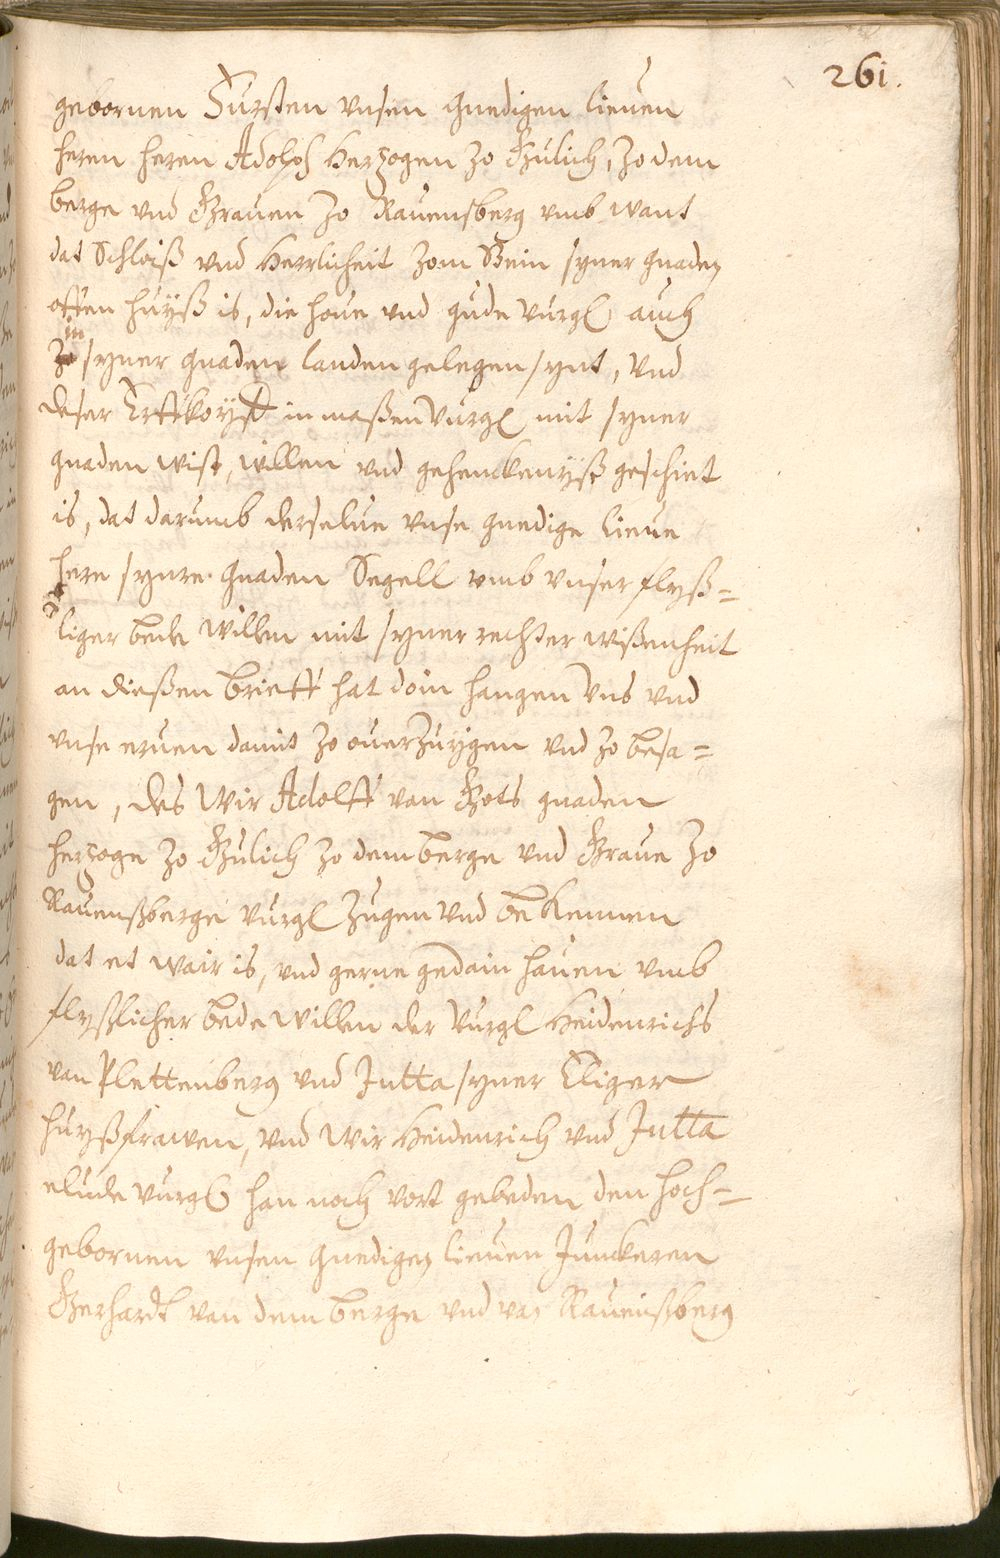 261.
gebornen Fursten vnsen gnedigen lieuen
heren heren Adolph Herzogen zo Gulich, zo dem
berge vnd Grauen zo Rauensberg vmb want
dat Schloiß vnd Herrlicheit zom Stein syner gnaden
offen huyß is, die houe vnd gude vurgl auch
in
zo syner gnaden landen gelegen synt, vnd
deser Erffkoyff in maßen vurgl mit syner
gnaden wist, willen vnd gehenckenyß geschiet
is, dat darumb derselue vnse gnedige lieue
here synre gnaden Segell vmb vnser flyß-
liger bede willen mit syner rechter wißenheit
an dießen brieff hat doin hangen vns vnd
vnse eruen damit zo ouerzuygen vnd zo besa-
gen, des Wir Adolff van Gots gnaden
herzoge zo Gulich zo dem berge vnd Graue zo
Rauenßberge vurgl zugen vnd bekennen
dat et wair is, vnd gerne gedain hauen vmb
flyßlicher bede willen der vurgl Heidenrichs
van Plettenberg vnd Jutta syner Eliger
huyßfrawen, vnd Wir Heidenrich vnd Jutta
elude vurgl han noch vort gebeden den hoch-
gebornen vnsen gnedigen lieuen Junckeren
Gerhardt van dem berge vnd van Rauenßberg